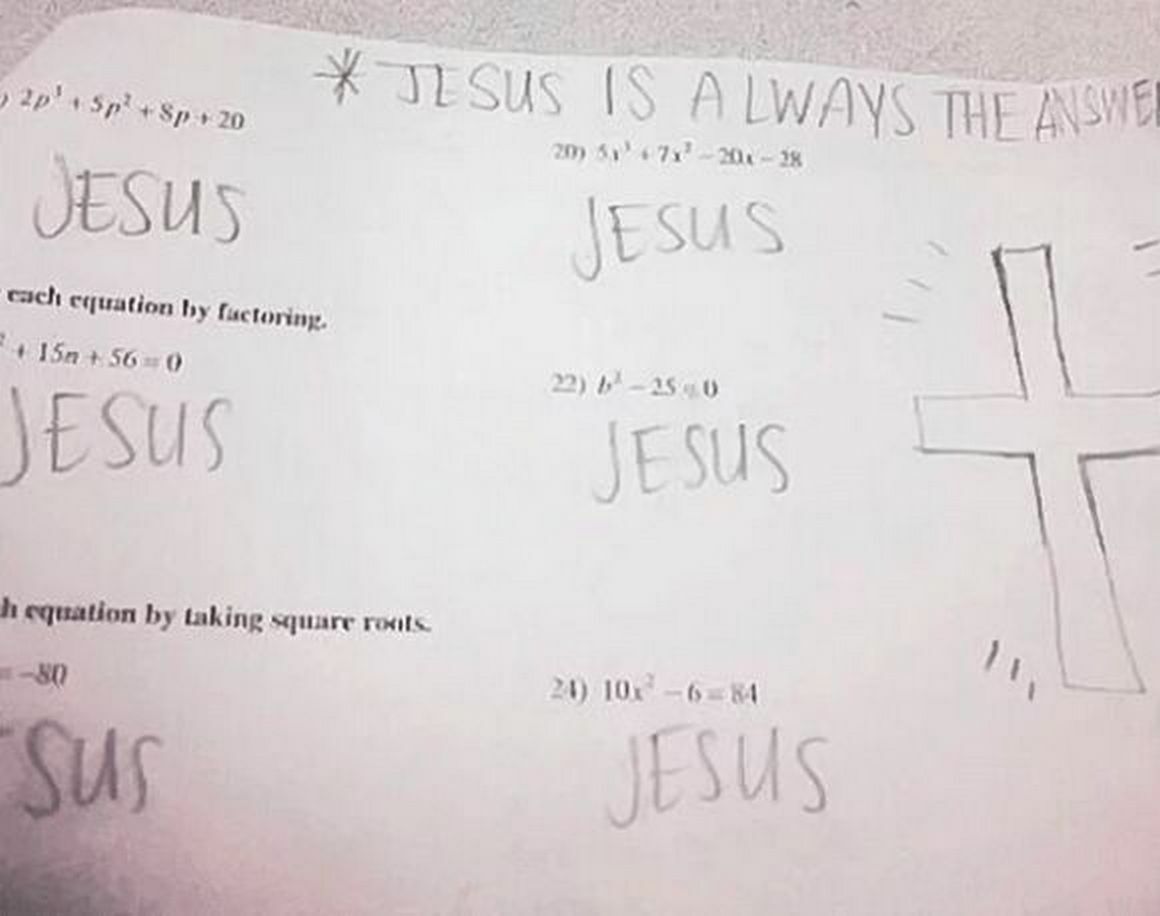 * JESUS IS ALWAYS THE ANSWER
) 2p³ + 5p² + 8p + 20
20) 5x³ + 7x² − 20x − 28
JESUS
JESUS
each equation by factoring.
² + 15n + 56 = 0
22) b² − 25 = 0
JESUS
JESUS
h equation by taking square roots.
= −80
24) 10x² − 6 = 84
SUS
JESUS